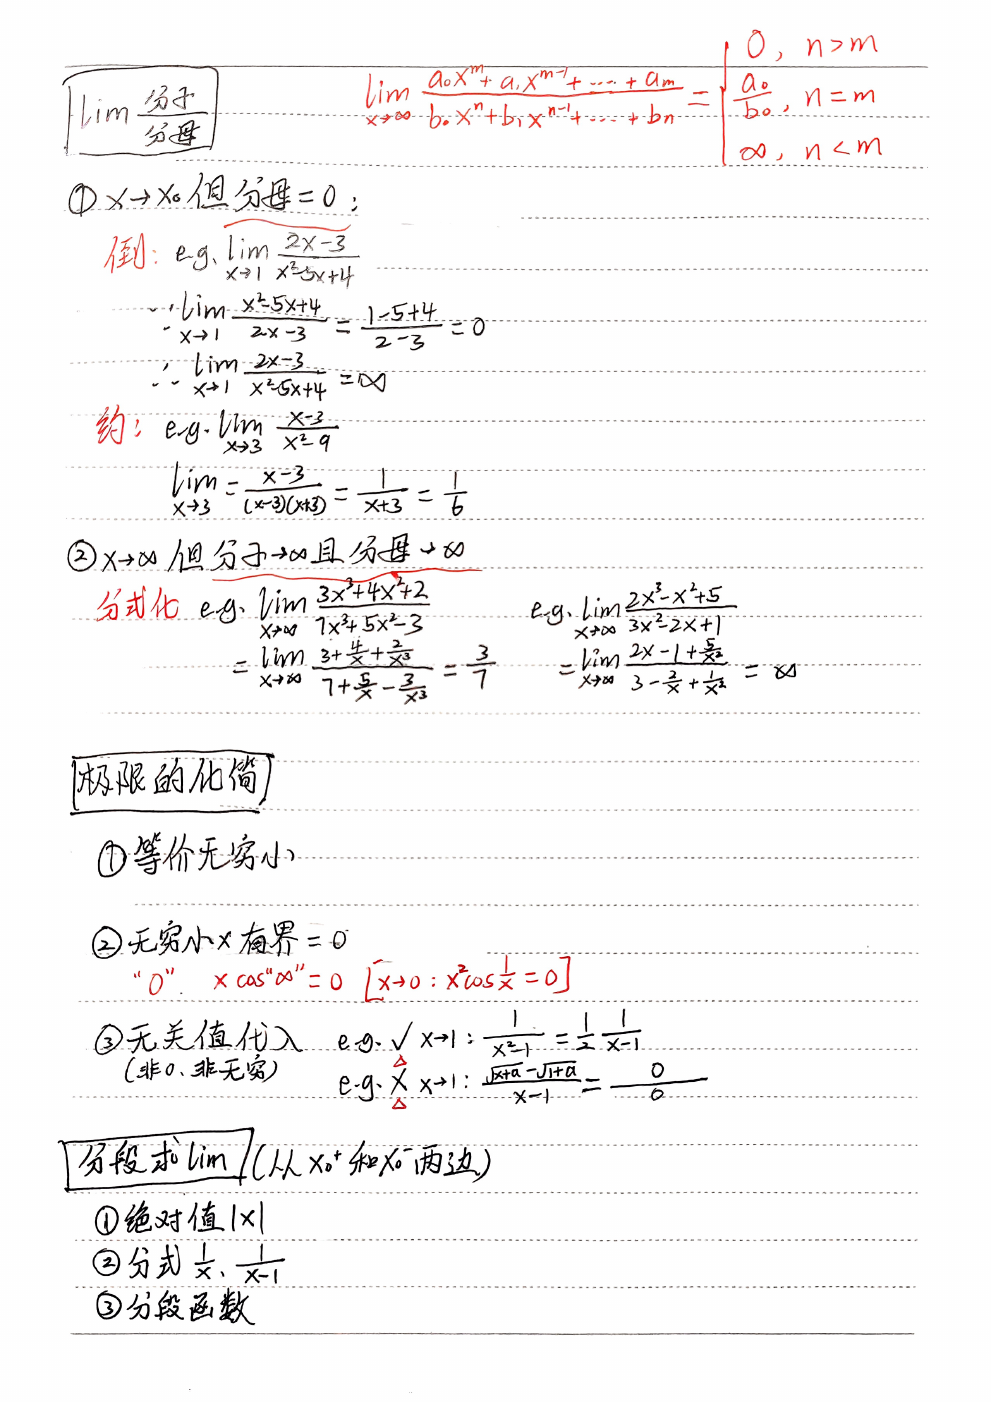 lim 分子/分母
lim x→∞ (a₀xᵐ + a₁xᵐ⁻¹ + ⋯ + aₘ)/(b₀xⁿ + b₁xⁿ⁻¹ + ⋯ + bₙ) = { 0, n>m
a₀/b₀, n=m
∞, n<m
① x→x₀ 但分母=0:
倒: e.g. lim x→1 (2x-3)/(x²-5x+4)
∵ lim x→1 (x²-5x+4)/(2x-3) = (1-5+4)/(2-3) = 0
∴ lim x→1 (2x-3)/(x²-5x+4) = ∞
约: e.g. lim x→3 (x-3)/(x²-9)
lim x→3 = (x-3)/((x-3)(x+3)) = 1/(x+3) = 1/6
② x→∞ 但分子→∞且分母→∞
分式化 e.g. lim x→∞ (3x³+4x²+2)/(7x³+5x²-3) e.g. lim x→∞ (2x³-x²+5)/(3x²-2x+1)
= lim x→∞ (3+4/x+2/x³)/(7+5/x-3/x³) = 3/7 = lim x→∞ (2x-1+5/x²)/(3-2/x+1/x²) = ∞
极限的化简
① 等价无穷小
② 无穷小×有界=0
"0". x cos"∞"=0 [x→0: x²cos 1/x=0]
③ 无关值代入 e.g. √ x→1: 1/(x²-1) = 1/2 1/(x-1)
(非0、非无穷) e.g. X x→1: (√(x+a)-√(1+a))/(x-1) = 0/0
分段求lim (从x₀⁺和x₀⁻两边)
① 绝对值|x|
② 分式 1/x、1/(x-1)
③ 分段函数